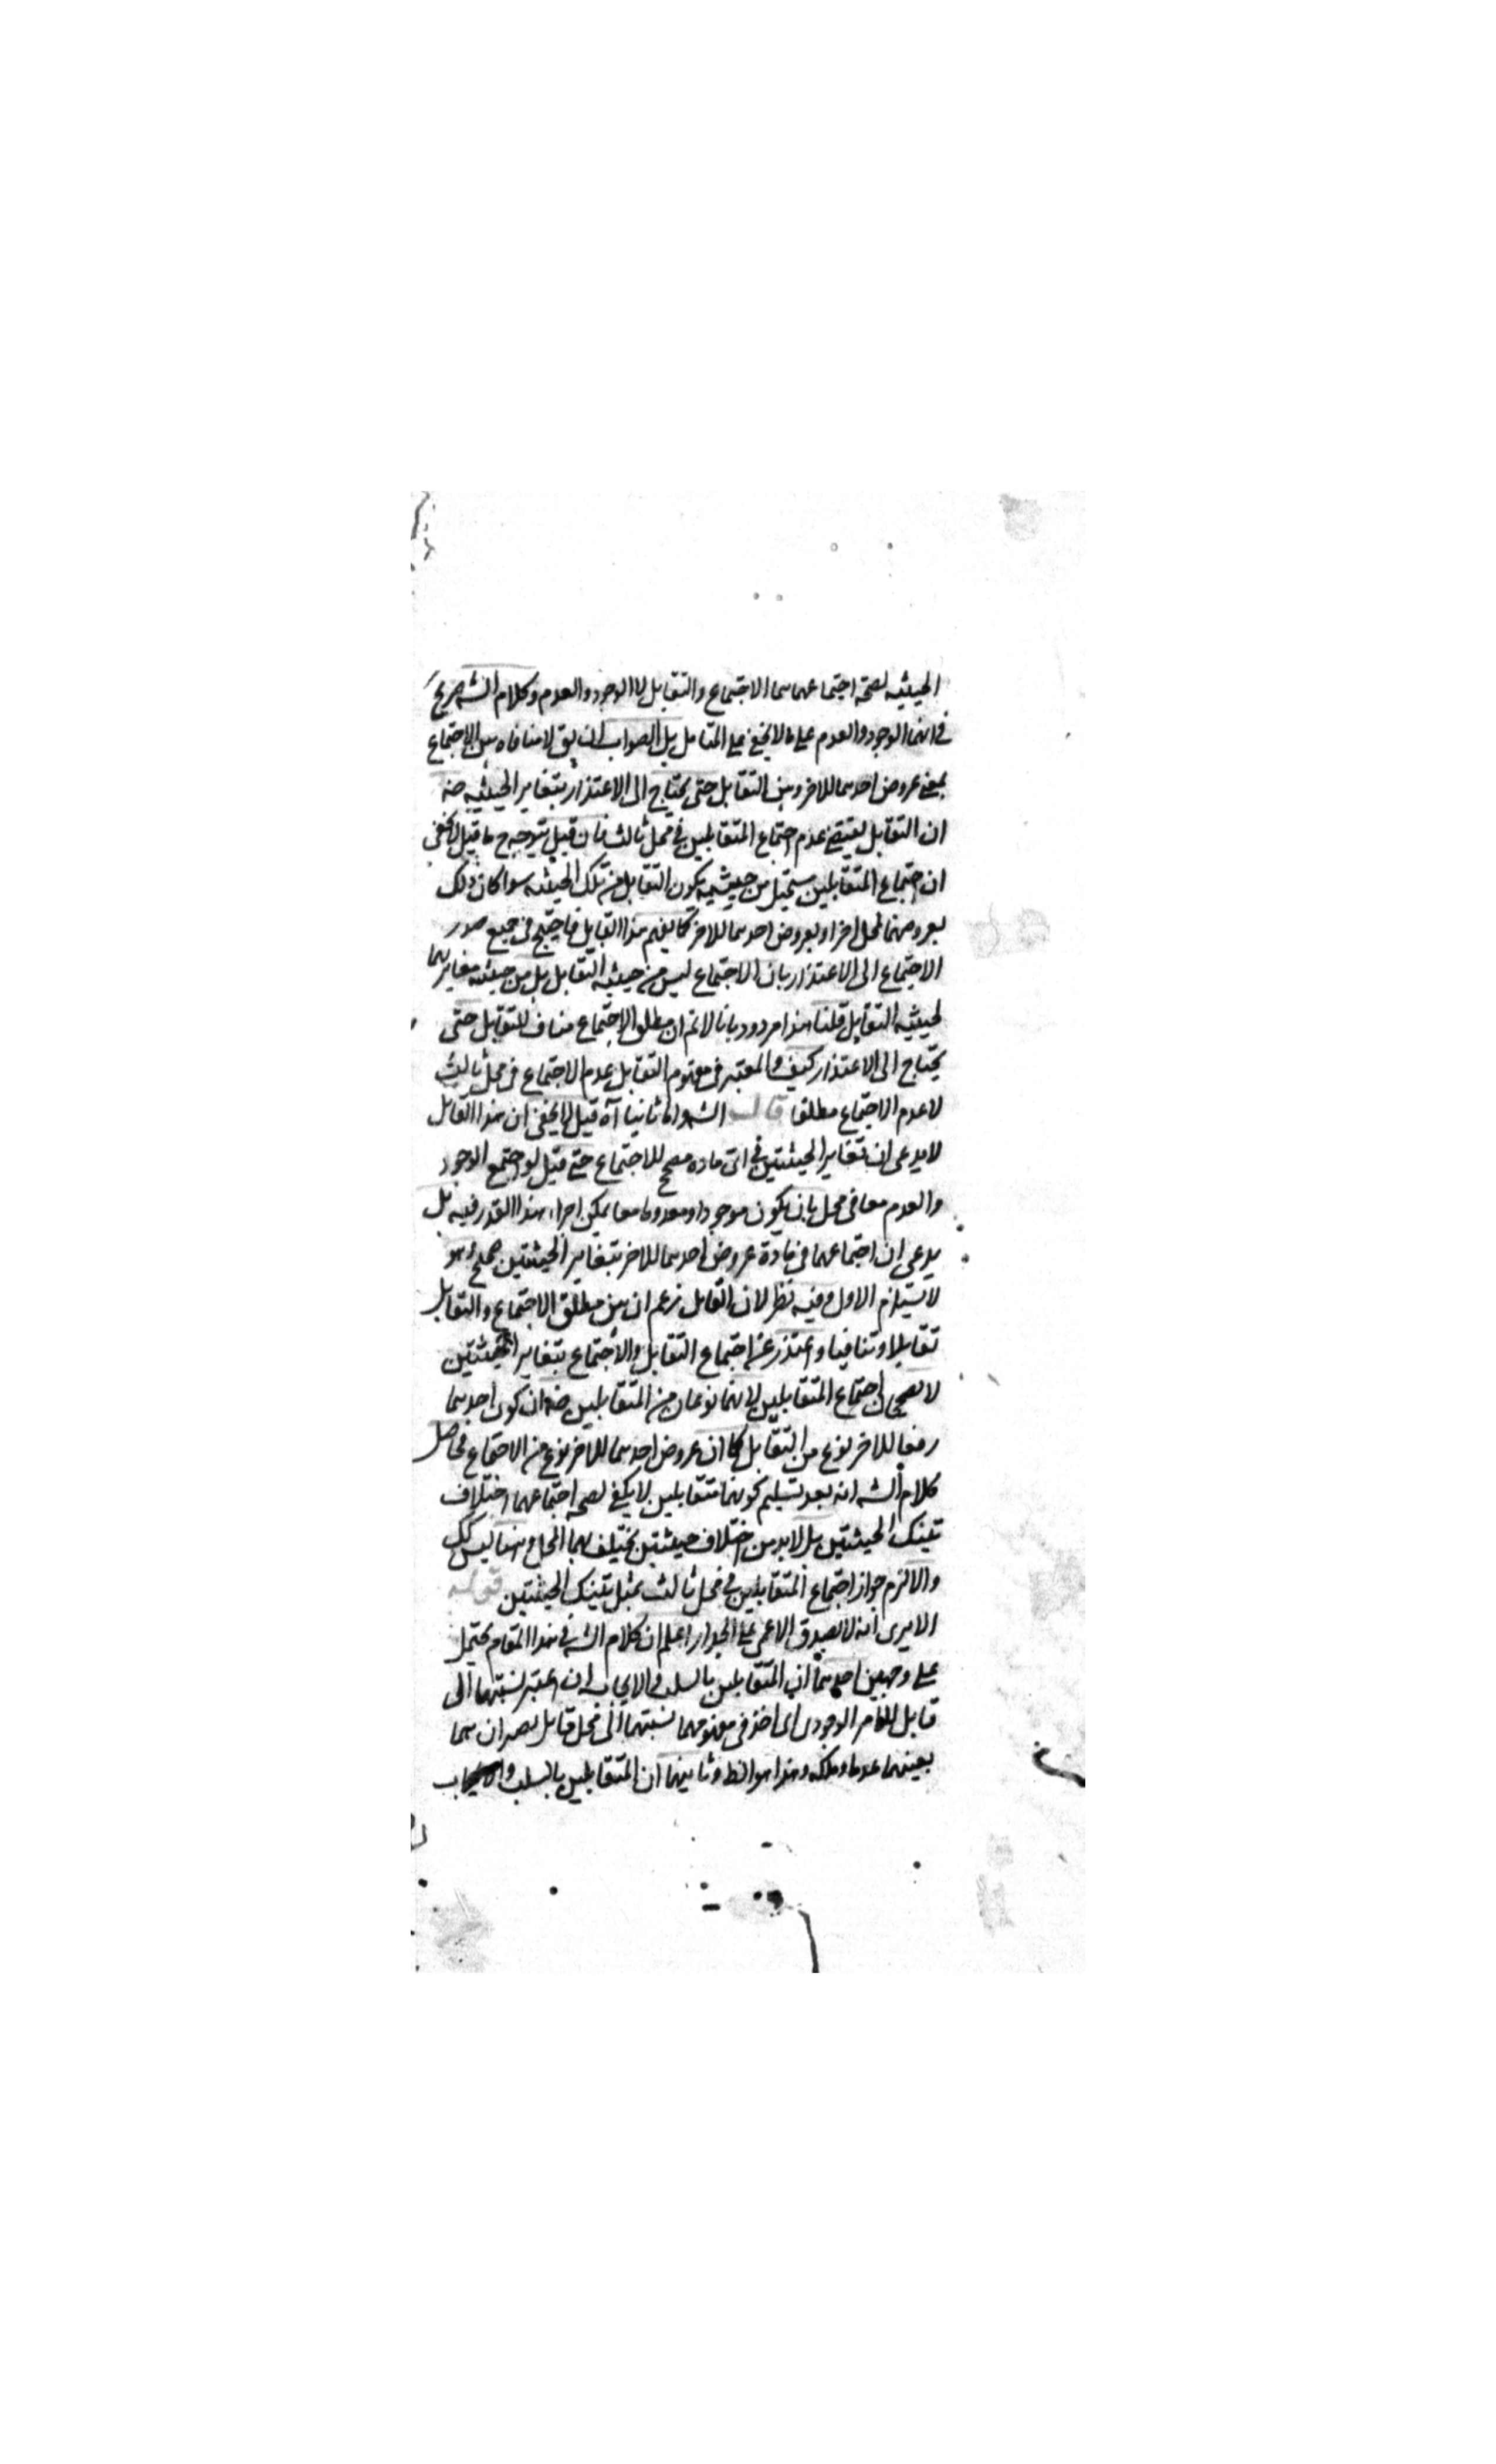 الحيثيه لصحة اجتماعهما هما الاجتماع والتقابل لا الوجود والعدم وكلام الشه صريح
فى انهما الوجود والعدم على ما لا يخفى على المتامل بل الصواب ان يق لا منافاه بين الاجتماع
بمعنى عروض احدهما للاخر وبين التقابل حتى يحتاج الى الاعتذار بتغاير الحيثيه ضه
ان التقابل يقتضى عدم اجتماع المتقابلين فى محل ثالث فان قيل يتوجه ح ما قيل لا يخفى
ان اجتماع المتقابلين مستحيل من حيثيه يكون التقابل من تلك الحيثيه سوا كان ذلك
بعروضهما لمحل اخر او بعروض احدهما للاخر كما يفهم هذا القايل فاحتيج فى جميع صور
الاجتماع الى الاعتذار بان الاجتماع ليس من حيثيه التقابل بل من حيثيه مغايرتها
لحيثيه التقابل قلنا هذا مردود بانا لا نم ان مطلق الاجتماع مناف للتقابل حتى
يحتاج الى الاعتذار كيف والمعتبر فى مفهوم التقابل عدم الاجتماع فى محل ثالث
لا عدم الاجتماع مطلقا قال الشه واما ثانيا آه قيل لا يخفى ان هذا القائل
لا يدعى ان تغاير الحيثيتين فى اى ماده مصحح للاجتماع حتى قيل لو اجتمع الوجود
والعدم معا فى محل بان يكون موجودا ومعدوما معا يمكن اجراء هذا القدر فيه بل
يدعى ان اجتماعهما فى مادة عروض احدهما للاخر بتغاير الحيثيتين صحيح وهو
لا يستلزم الاول وفيه نظر لان القائل زعم ان بين مطلق الاجتماع والتقابل
تقابلا وتنافيا واعتذر عن اجتماع التقابل والاجتماع بتغاير الحيثيتين
لا يصحح اجتماع المتقابلين لانهما نوعان من المتقابلين ضه ان كون احدهما
رفعا للاخر نوع من التقابل كما ان عروض احدهما للاخر نوع من الاجتماع فحاصل
كلام الشه انه بعد تسليم كونهما متقابلين لا يكفى لصحة اجتماعهما اختلاف
تينك الحيثيتين بل لابد من اختلاف حيثيتين يختلف بهما المحل وههنا ليس كك
والا لزم جواز اجتماع المتقابلين فى محل ثالث بمثل تينك الحيثيتين قوله
الا يرى انه لا يصدق الاعمى على الجدار اعلم ان كلام الشه فى هذا المقام يحتمل
على وجهين احدهما ان المتقابلين بالسلب والايجاب ان اعتبر نسبتهما الى
قابل للامر الوجودى اى اخذ فى مفهومهما نسبتهما الى محل قابل يصيران هما
بعينهما عدما وملكه وهذا هو الظ وثانيهما ان المتقابلين بالسلب والايجاب